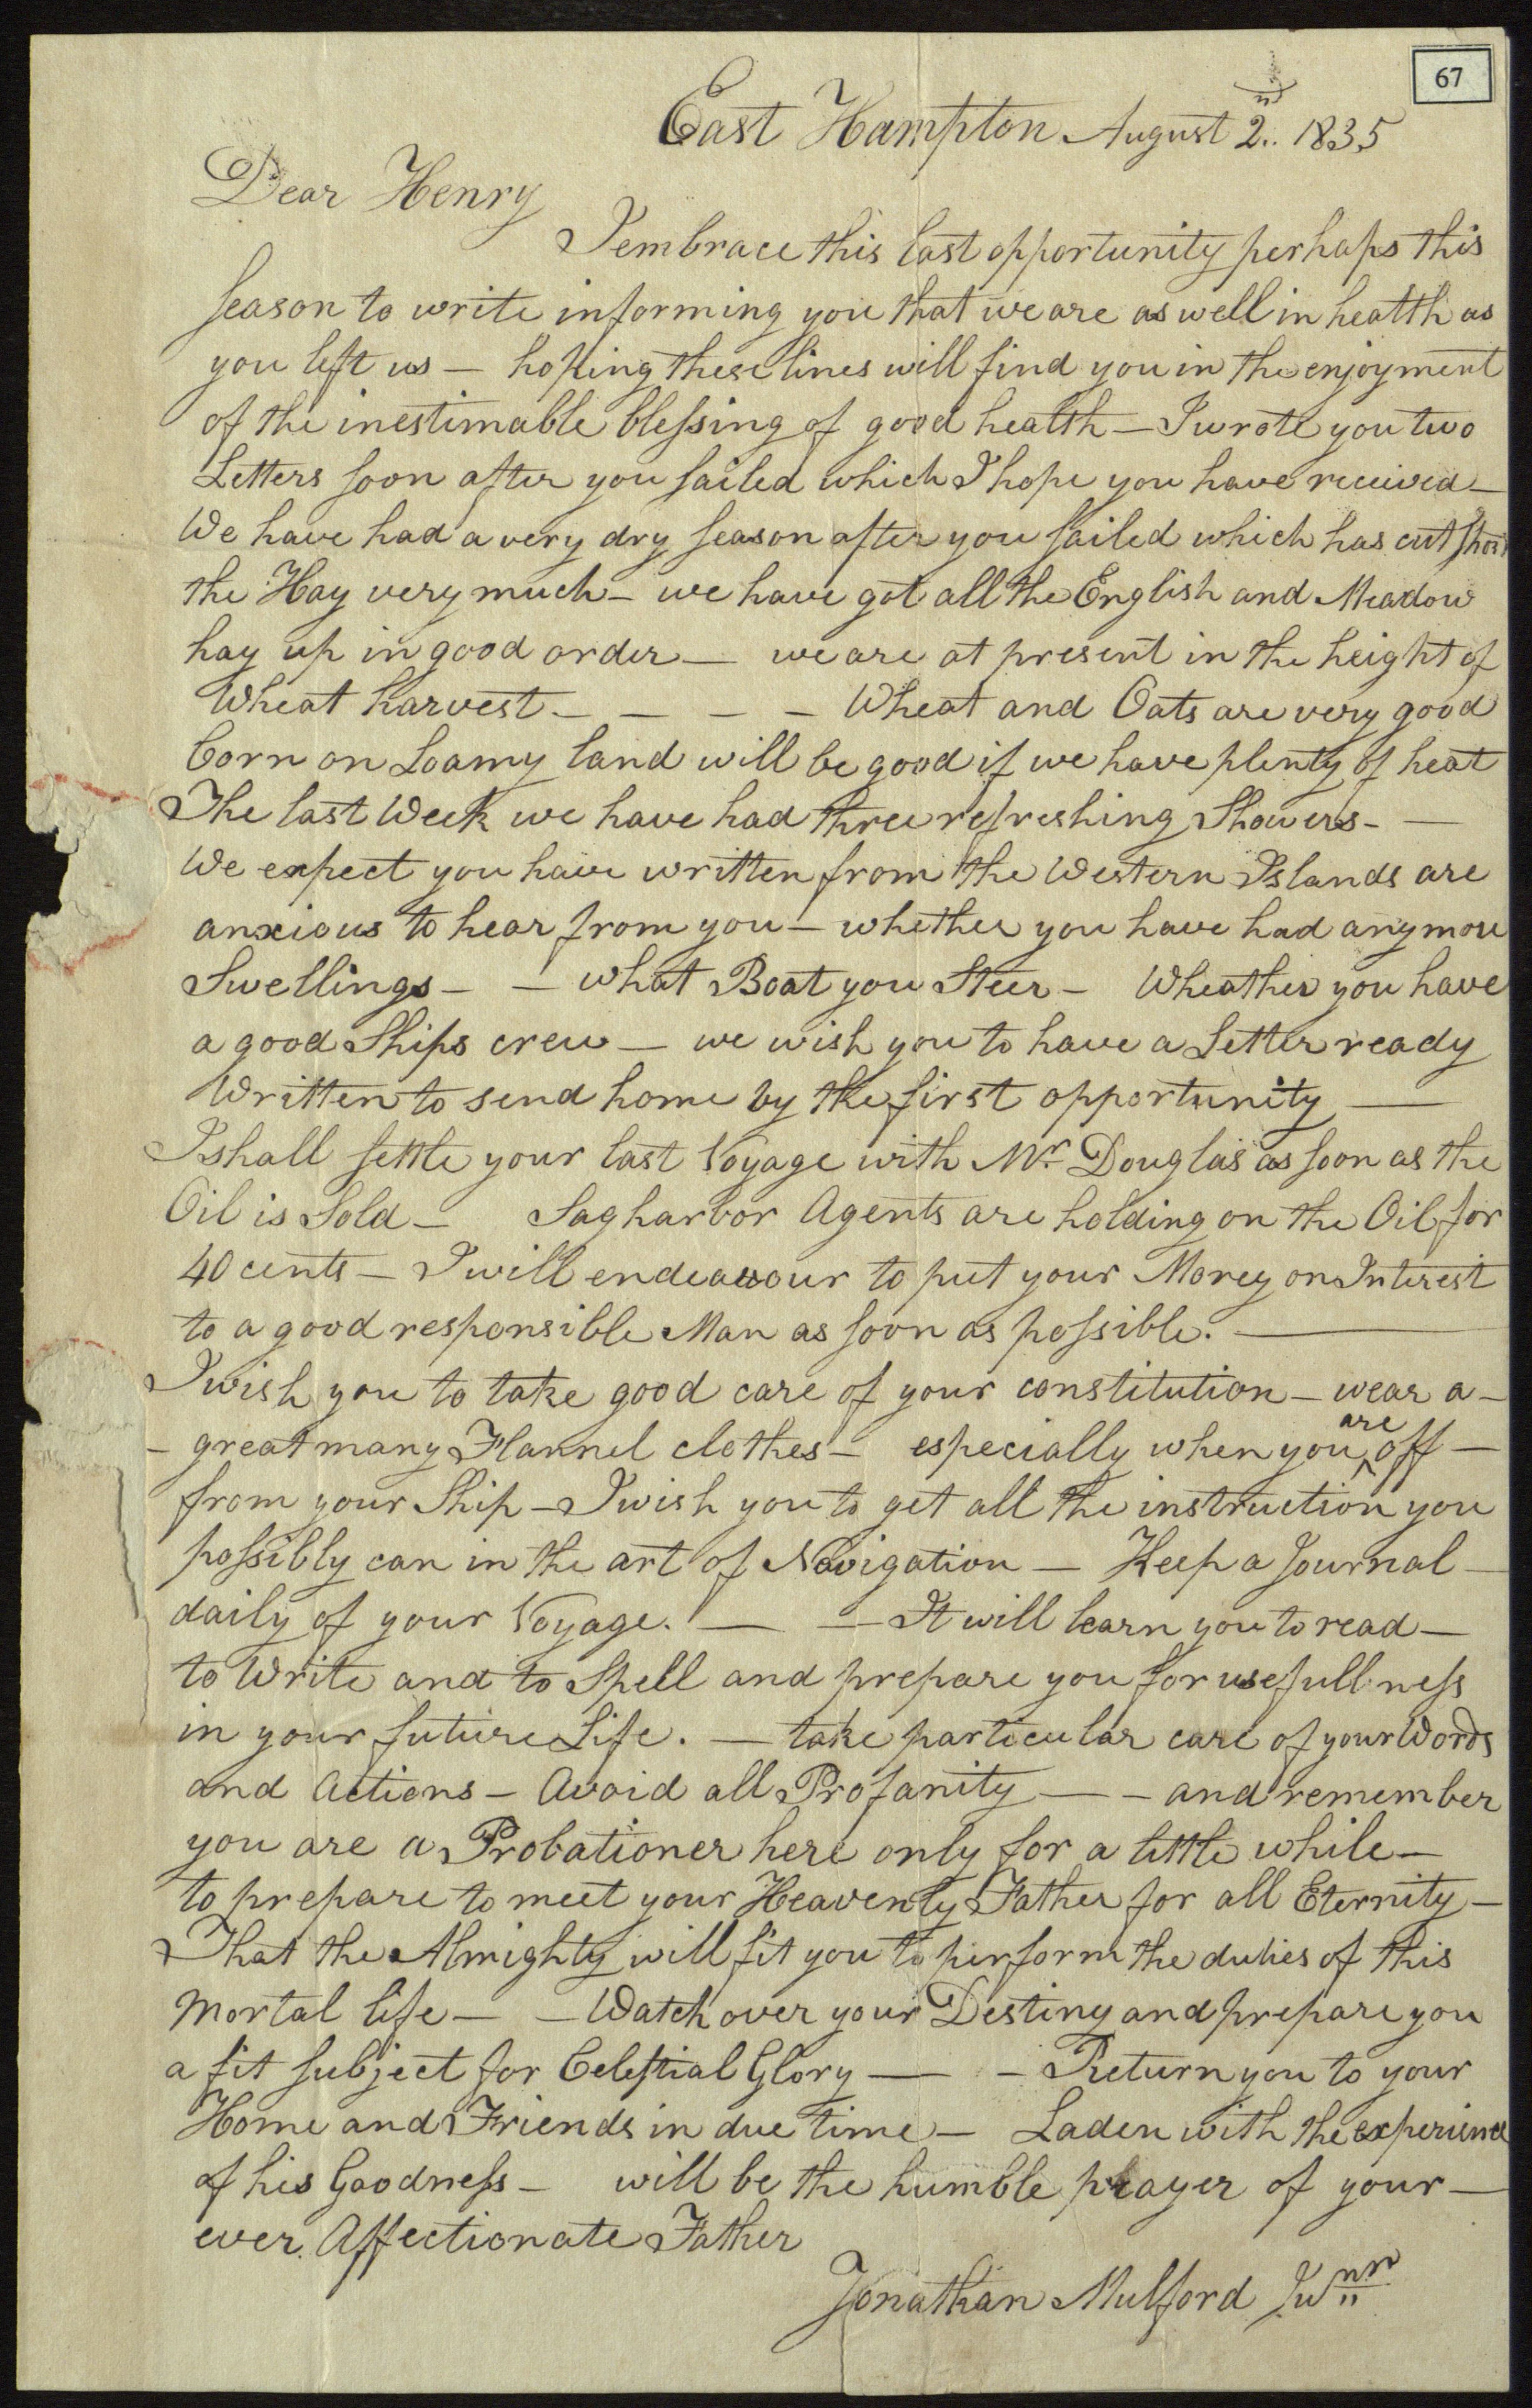 67
East Hampton August 2nd 1835
Dear Henry
I embrace this last opportunity perhaps this
season to write informing you that we are as well in health as
you left us — hoping these lines will find you in the enjoyment
of the inestimable blessing of good health — I wrote you two
Letters soon after you sailed which I hope you have received —
We have had a very dry season after you sailed which has cut short
the Hay very much — we have got all the English and Meadow
hay up in good order — we are at present in the height of
Wheat harvest — — — — Wheat and Oats are very good
Corn on Loamy land will be good if we have plenty of heat
The last Week we have had three refreshing Showers — —
We expect you have written from the Western Islands are
anxious to hear from you — whether you have had any more
Swellings — — what Boat you Steer — Wheather you have
a good Ships crew — we wish you to have a Letter ready
Written to send home by the first opportunity —
I shall settle your last Voyage with Mr Douglas as soon as the
Oil is Sold — Sagharbor Agents are holding on the Oil for
40 cents — I will endeavour to put your Money on Interest
to a good responsible Man as soon as possible. —
I wish you to take good care of your constitution — wear a —
— great many Flannel clothes — especially when you are off —
from your Ship — I wish you to get all the instruction you
possibly can in the art of Navigation — Keep a Journal —
daily of your Voyage. — — It will learn you to read —
to Write and to Spell and prepare you for usefullness
in your future Life. — take particular care of your Words
and Actions — Avoid all Profanity — — and remember
you are a Probationer here only for a little while —
to prepare to meet your Heavenly Father for all Eternity —
That the Almighty will fit you to perform the duties of this
Mortal life — — Watch over your Destiny and prepare you
a fit subject for Celestial Glory — — Return you to your
Home and Friends in due time — Laden with the experience
of his Goodness — will be the humble prayer of your —
ever Affectionate Father
Jonathan Mulford Junr